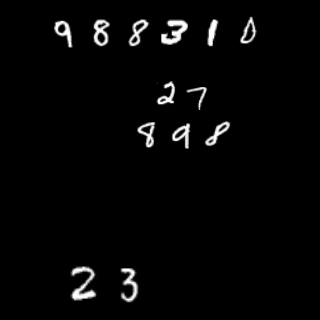 988310
27
898
23